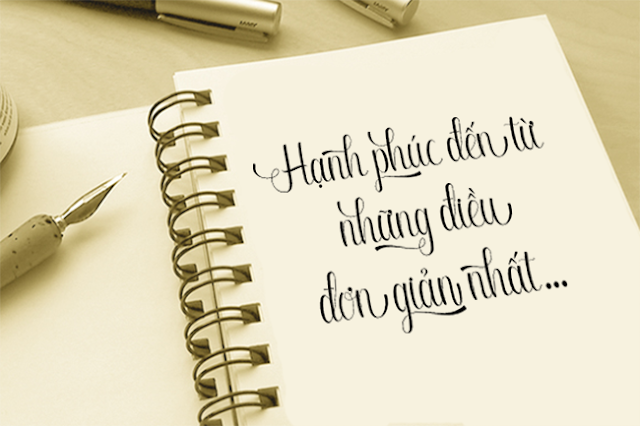 LAMY
Hạnh phúc đến từ
những điều
đơn giản nhất...